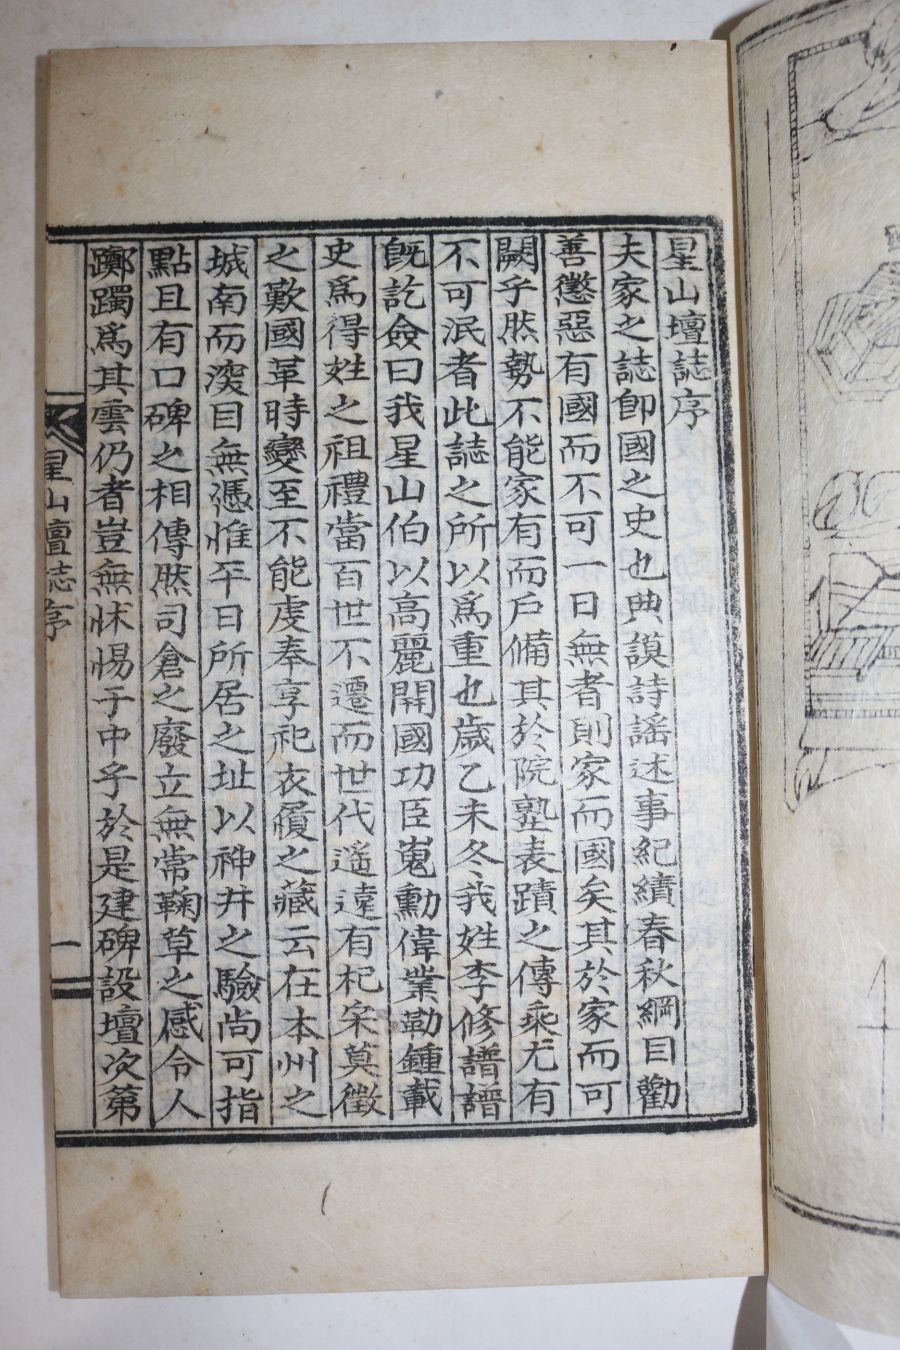 星山壇誌序
夫家之誌卽國之史也典謨詩謠述事紀績春秋綱目勸
善懲惡有國而不可一日無者則家而國矣其於家而可
闕乎然勢不能家有而戶備其於院塾表蹟之傳乘尤有
不可泯者此誌之所以爲重也歲乙未冬我姓李修譜譜
旣訖僉曰我星山伯以高麗開國功臣嵬勳偉業勒鍾載
史爲得姓之祖禮當百世不遷而世代遙遠有杞宋莫徵
之歎國革時變至不能虔奉享祀衣履之藏云在本州之
城南而漠目無憑惟平日所居之址以神井之驗尙可指
點且有口碑之相傳然司倉之廢立無常鞠草之感令人
躑躅爲其雲仍者豈無怵惕于中乎於是建碑設壇次第
星山壇誌序
一